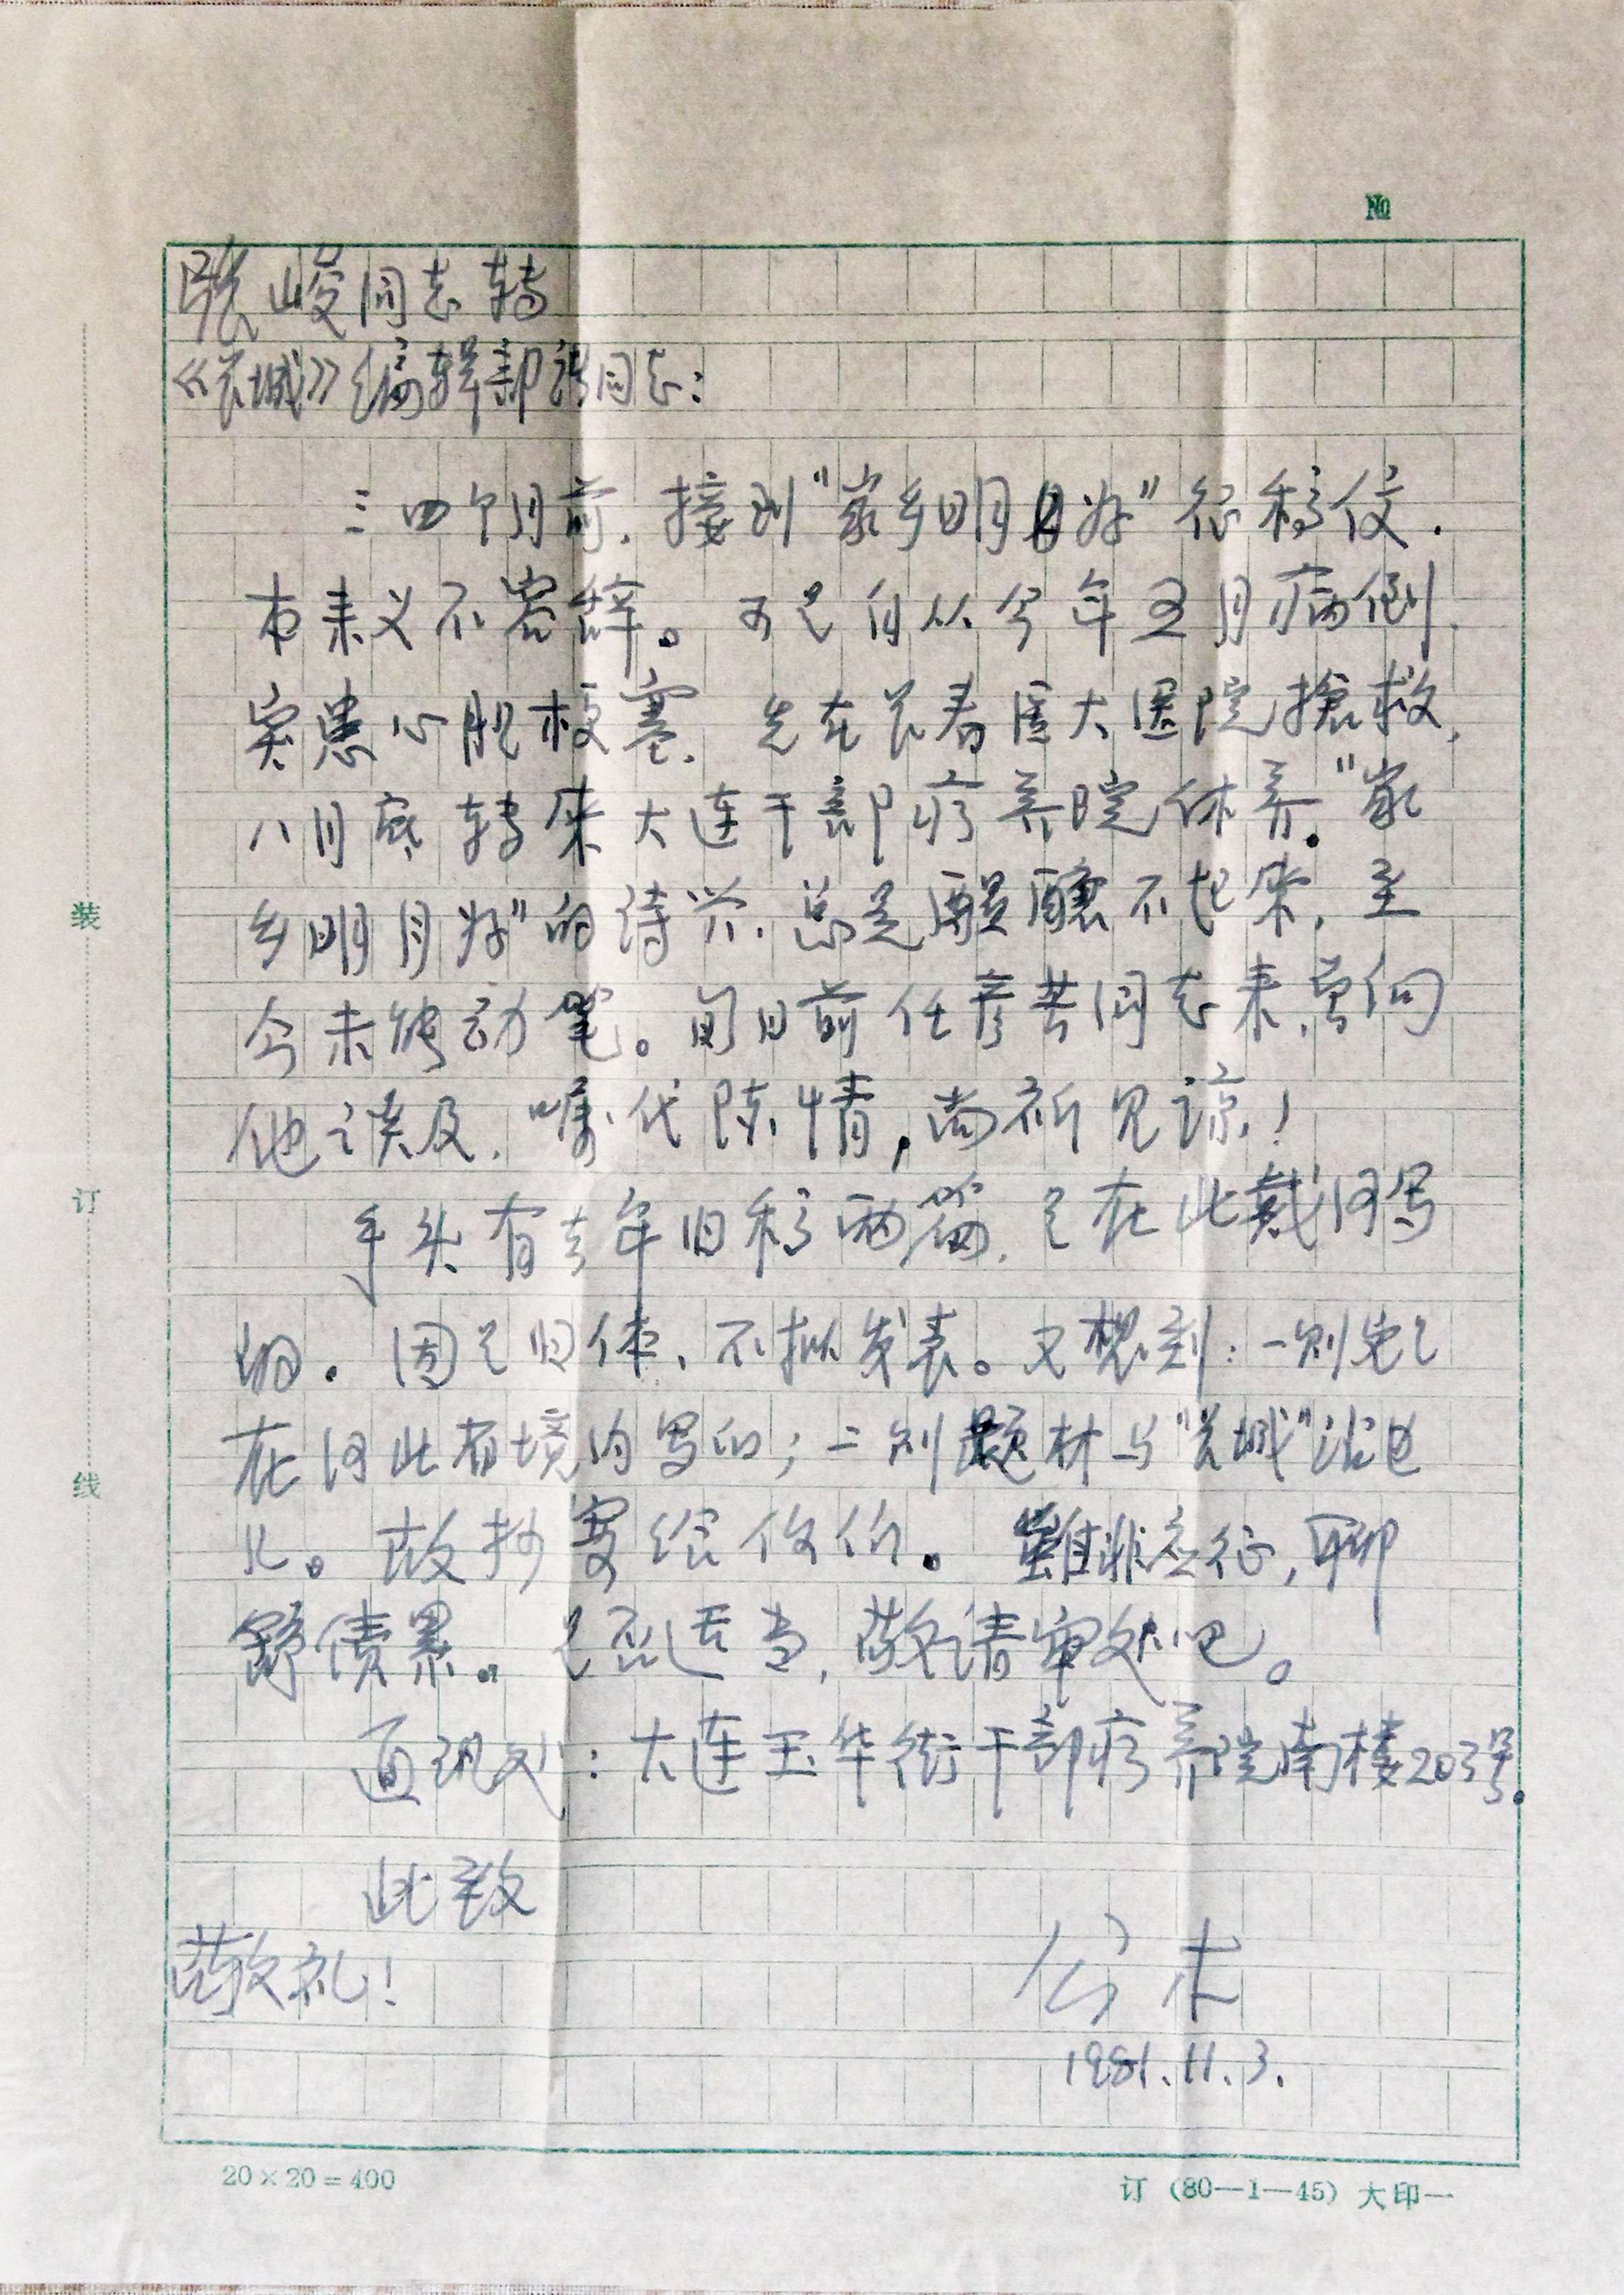 №
张峻同志转
《长城》编辑部诸同志：
三四个月前，接到"家乡明月好"征稿信，
本来义不容辞。可是自从今年五月病倒，
实患心肌梗塞，先在长春医大医院搶救，
八月底转来大连干部疗养院休养。"家
乡明月好"的诗兴，总是醖釀不起来，至
今未能动笔。旬日前任彦芳同志来，曾向
他谈及，嘱代陈情，尚祈见谅！
手头有去年旧稿两篇，是在北戴河写
的。因是旧体，不拟发表。又想到：一则它是
在河北省境内写的；二则题材与"长城"沾边
儿。故抄寄给你们。雖非应征，聊
舒债累。是否适当，敬请审处吧。
通讯处：大连玉华街干部疗养院南楼203号。
此致
敬礼！
公木
1981.11.3.
装
订
线
20×20=400
订（80—1—45）大印一